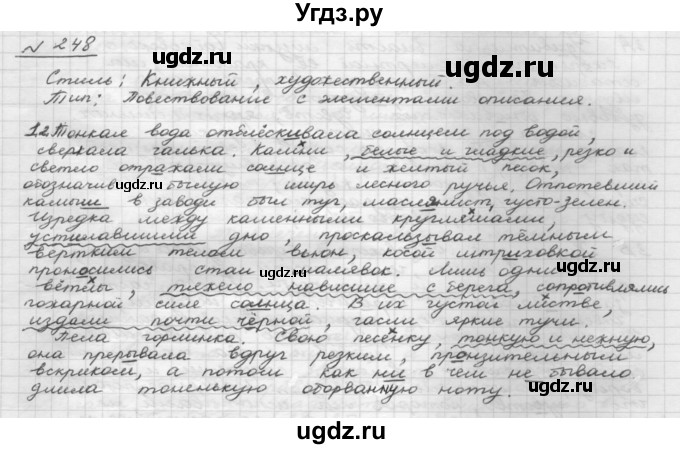 Угдз.ру
№ 248
Стиль: Книжный, художественный.
Тип: Повествование с элементами описания.
12 Тонкая вода отблёскивала солнцем под водой,
сверкала галька. Камни, белые и гладкие, резко и
светло отражали солнце и желтый песок,
обозначив бывшую ширь лесного ручья. Отпотевший
камыш в заводи был туг, маслянист, густо-зелен.
Изредка между каменными кругляшами,
устилавшими дно, проскальзывал тёмным
вертким телом вьюн, косой штриховкой
проносились стаи малявок. Лишь одни
вётлы, тяжело нависшие с берега, сопротивлялись
пожарной силе солнца. В их густой листве,
издали почти чёрной, гасли яркие тучи.
Пела горлинка. Свою песенку, тонкую и нежную,
она прерывала вдруг резким, пронзительным
вскриком, а потом как ни в чем не бывало
длила тоненькую оборванную ноту.
ugdz.ru
ugdz.ru
ugdz.ru
ugdz.ru
ugdz.ru
ugdz.ru
ugdz.ru
ugdz.ru
ugdz.ru
ugdz.ru
ugdz.ru
ugdz.ru
ugdz.ru